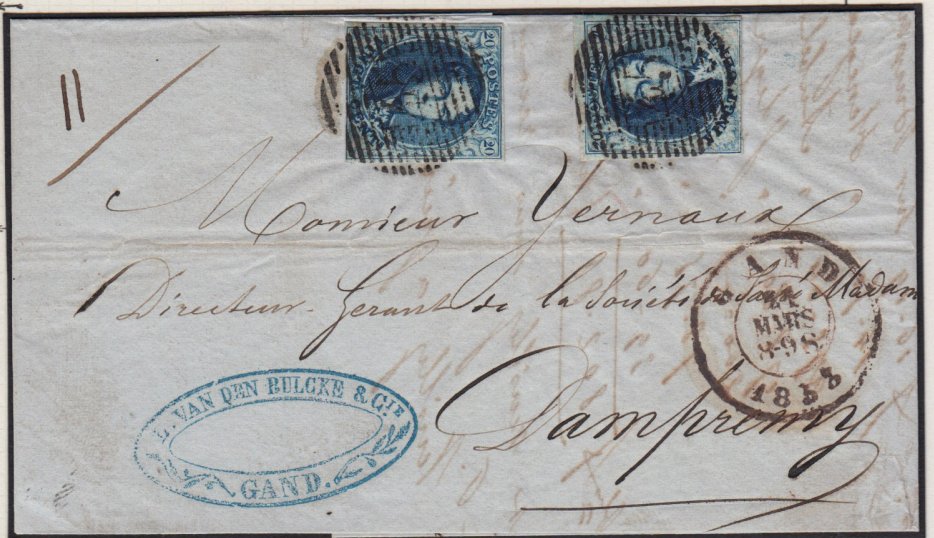 11
20 POSTES 20
Monsieur Yernaux
Directeur Gerant de la Société de Sacré Madame
Dampremy
GAND
MARS
8-9S
1858
L. VAN DEN BULCKE & CIE
GAND.